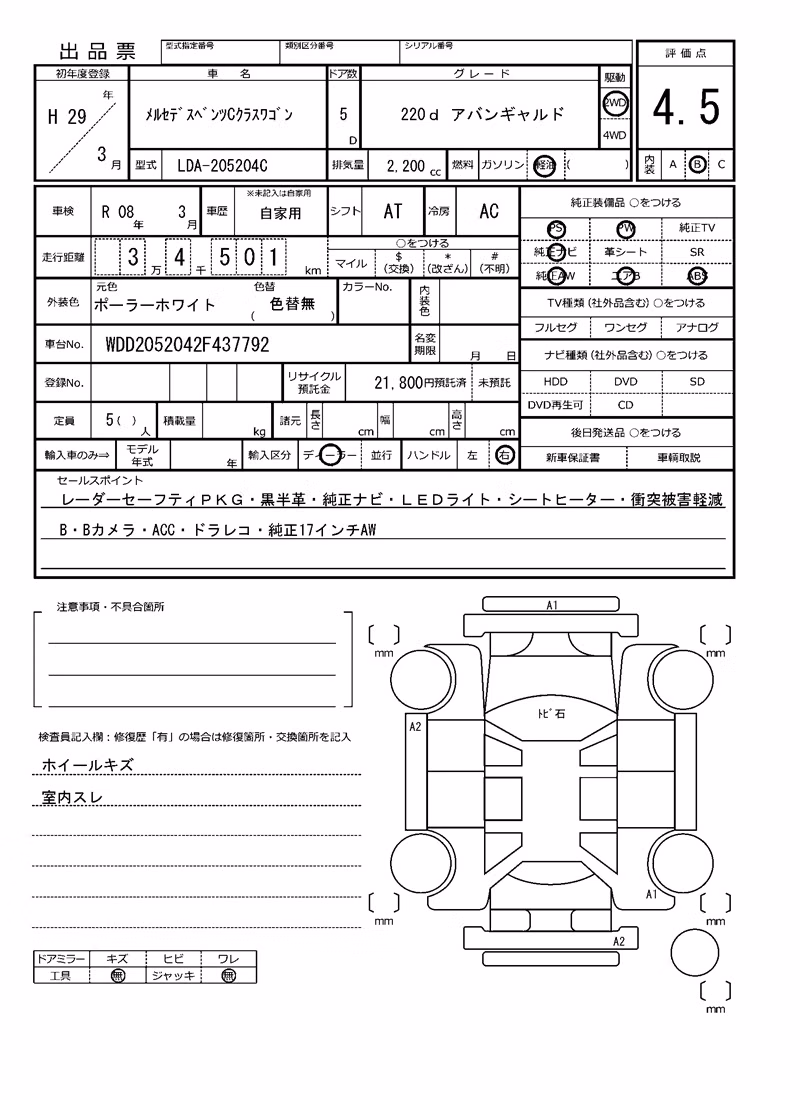 出品票 型式指定番号 類別区分番号 シリアル番号 評価点
初年度登録 車名 ドア数 グレード 駆動
H 29 年 3 月 ﾒﾙｾﾃﾞｽﾍﾞﾝﾂCｸﾗｽﾜｺﾞﾝ 5 D 220d アバンギャルド 2WD 4WD 4.5
型式 LDA-205204C 排気量 2,200 cc 燃料 ガソリン 軽油 ( ) 内装 A B C
車検 R 08 年 3 月 車歴 ※未記入は自家用 自家用 シフト AT 冷房 AC
純正装備品 ○をつける
PS PW 純正TV
純正ナビ 革シート SR
純正AW エアB ABS
走行距離 3 万 4 千 5 0 1 km
○をつける
マイル $ (交換) * (改ざん) # (不明)
外装色 元色 ポーラーホワイト 色替 ( 色替無 ) カラーNo. 内装色
TV種類 (社外品含む) ○をつける
フルセグ ワンセグ アナログ
車台No. WDD2052042F437792 名変期限 月 日
ナビ種類 (社外品含む) ○をつける
HDD DVD SD
DVD再生可 CD
登録No. リサイクル預託金 21,800円預託済 未預託
定員 5 ( ) 人 積載量 kg 諸元 長さ cm 幅 cm 高さ cm
後日発送品 ○をつける
新車保証書 車輌取説
輸入車のみ⇒ モデル年式 年 輸入区分 ディーラー 並行 ハンドル 左 右
セールスポイント
レーダーセーフティＰＫＧ・黒半革・純正ナビ・ＬＥＤライト・シートヒーター・衝突被害軽減
B・Bカメラ・ACC・ドラレコ・純正17インチAW
注意事項・不具合箇所
検査員記入欄：修復歴「有」の場合は修復箇所・交換箇所を記入
ホイールキズ
室内スレ
ドアミラー キズ ヒビ ワレ
工具 無 ジャッキ 無
A1
mm mm
ﾄﾋﾞ石
A2
A1
mm mm
A2
mm